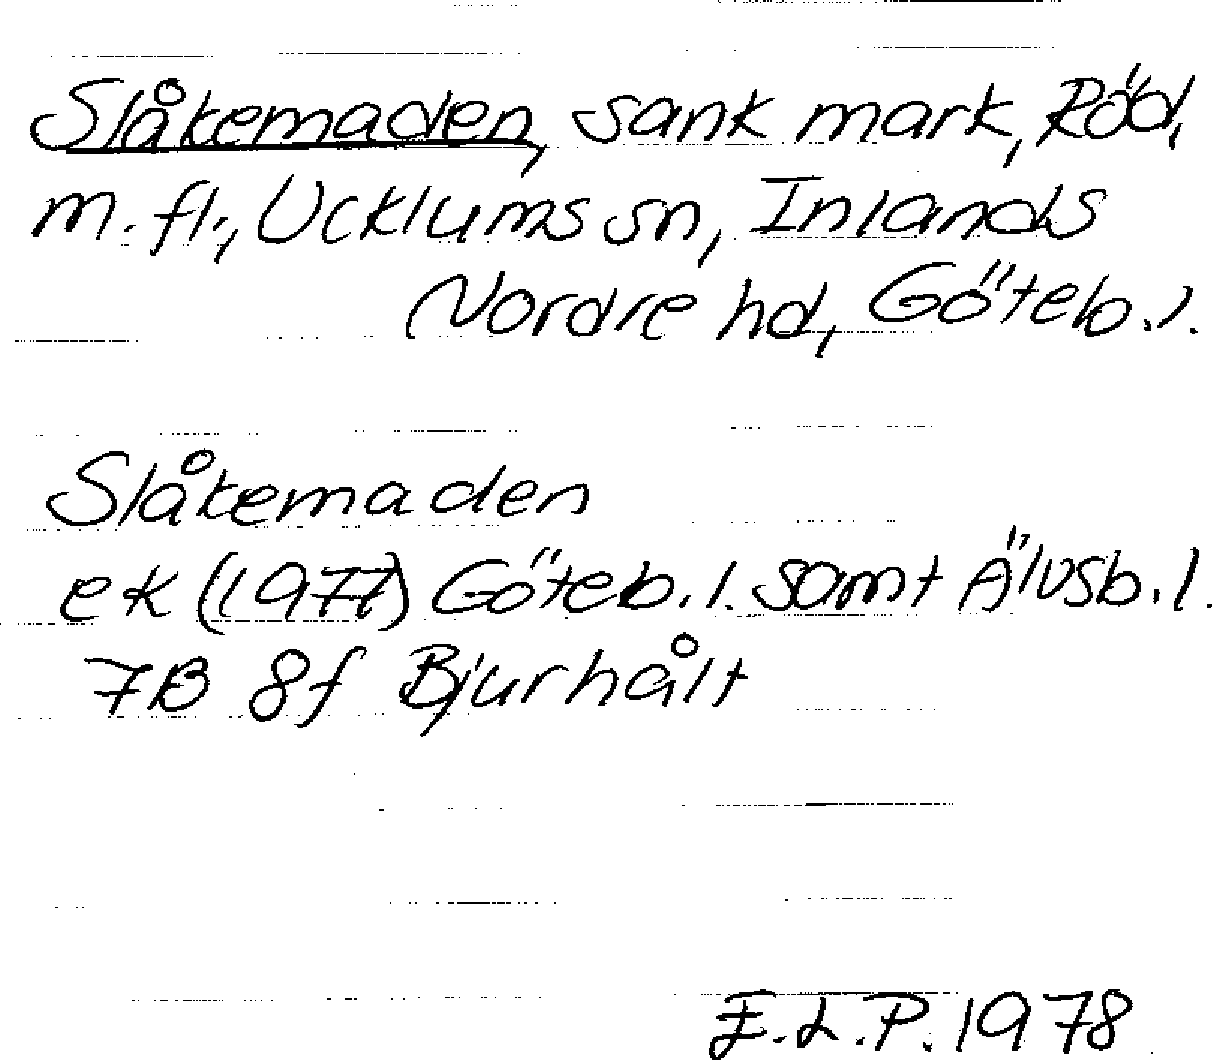 Slåkemaden, sank mark, Röd,
m. fl., Ucklums sn, Inlands
Nordre hd, Göteb. l.
Slåkemaden
ek (1977) Göteb. l. samt Älvsb. l.
7B 8f Bjurhålt
E. L. P. 1978